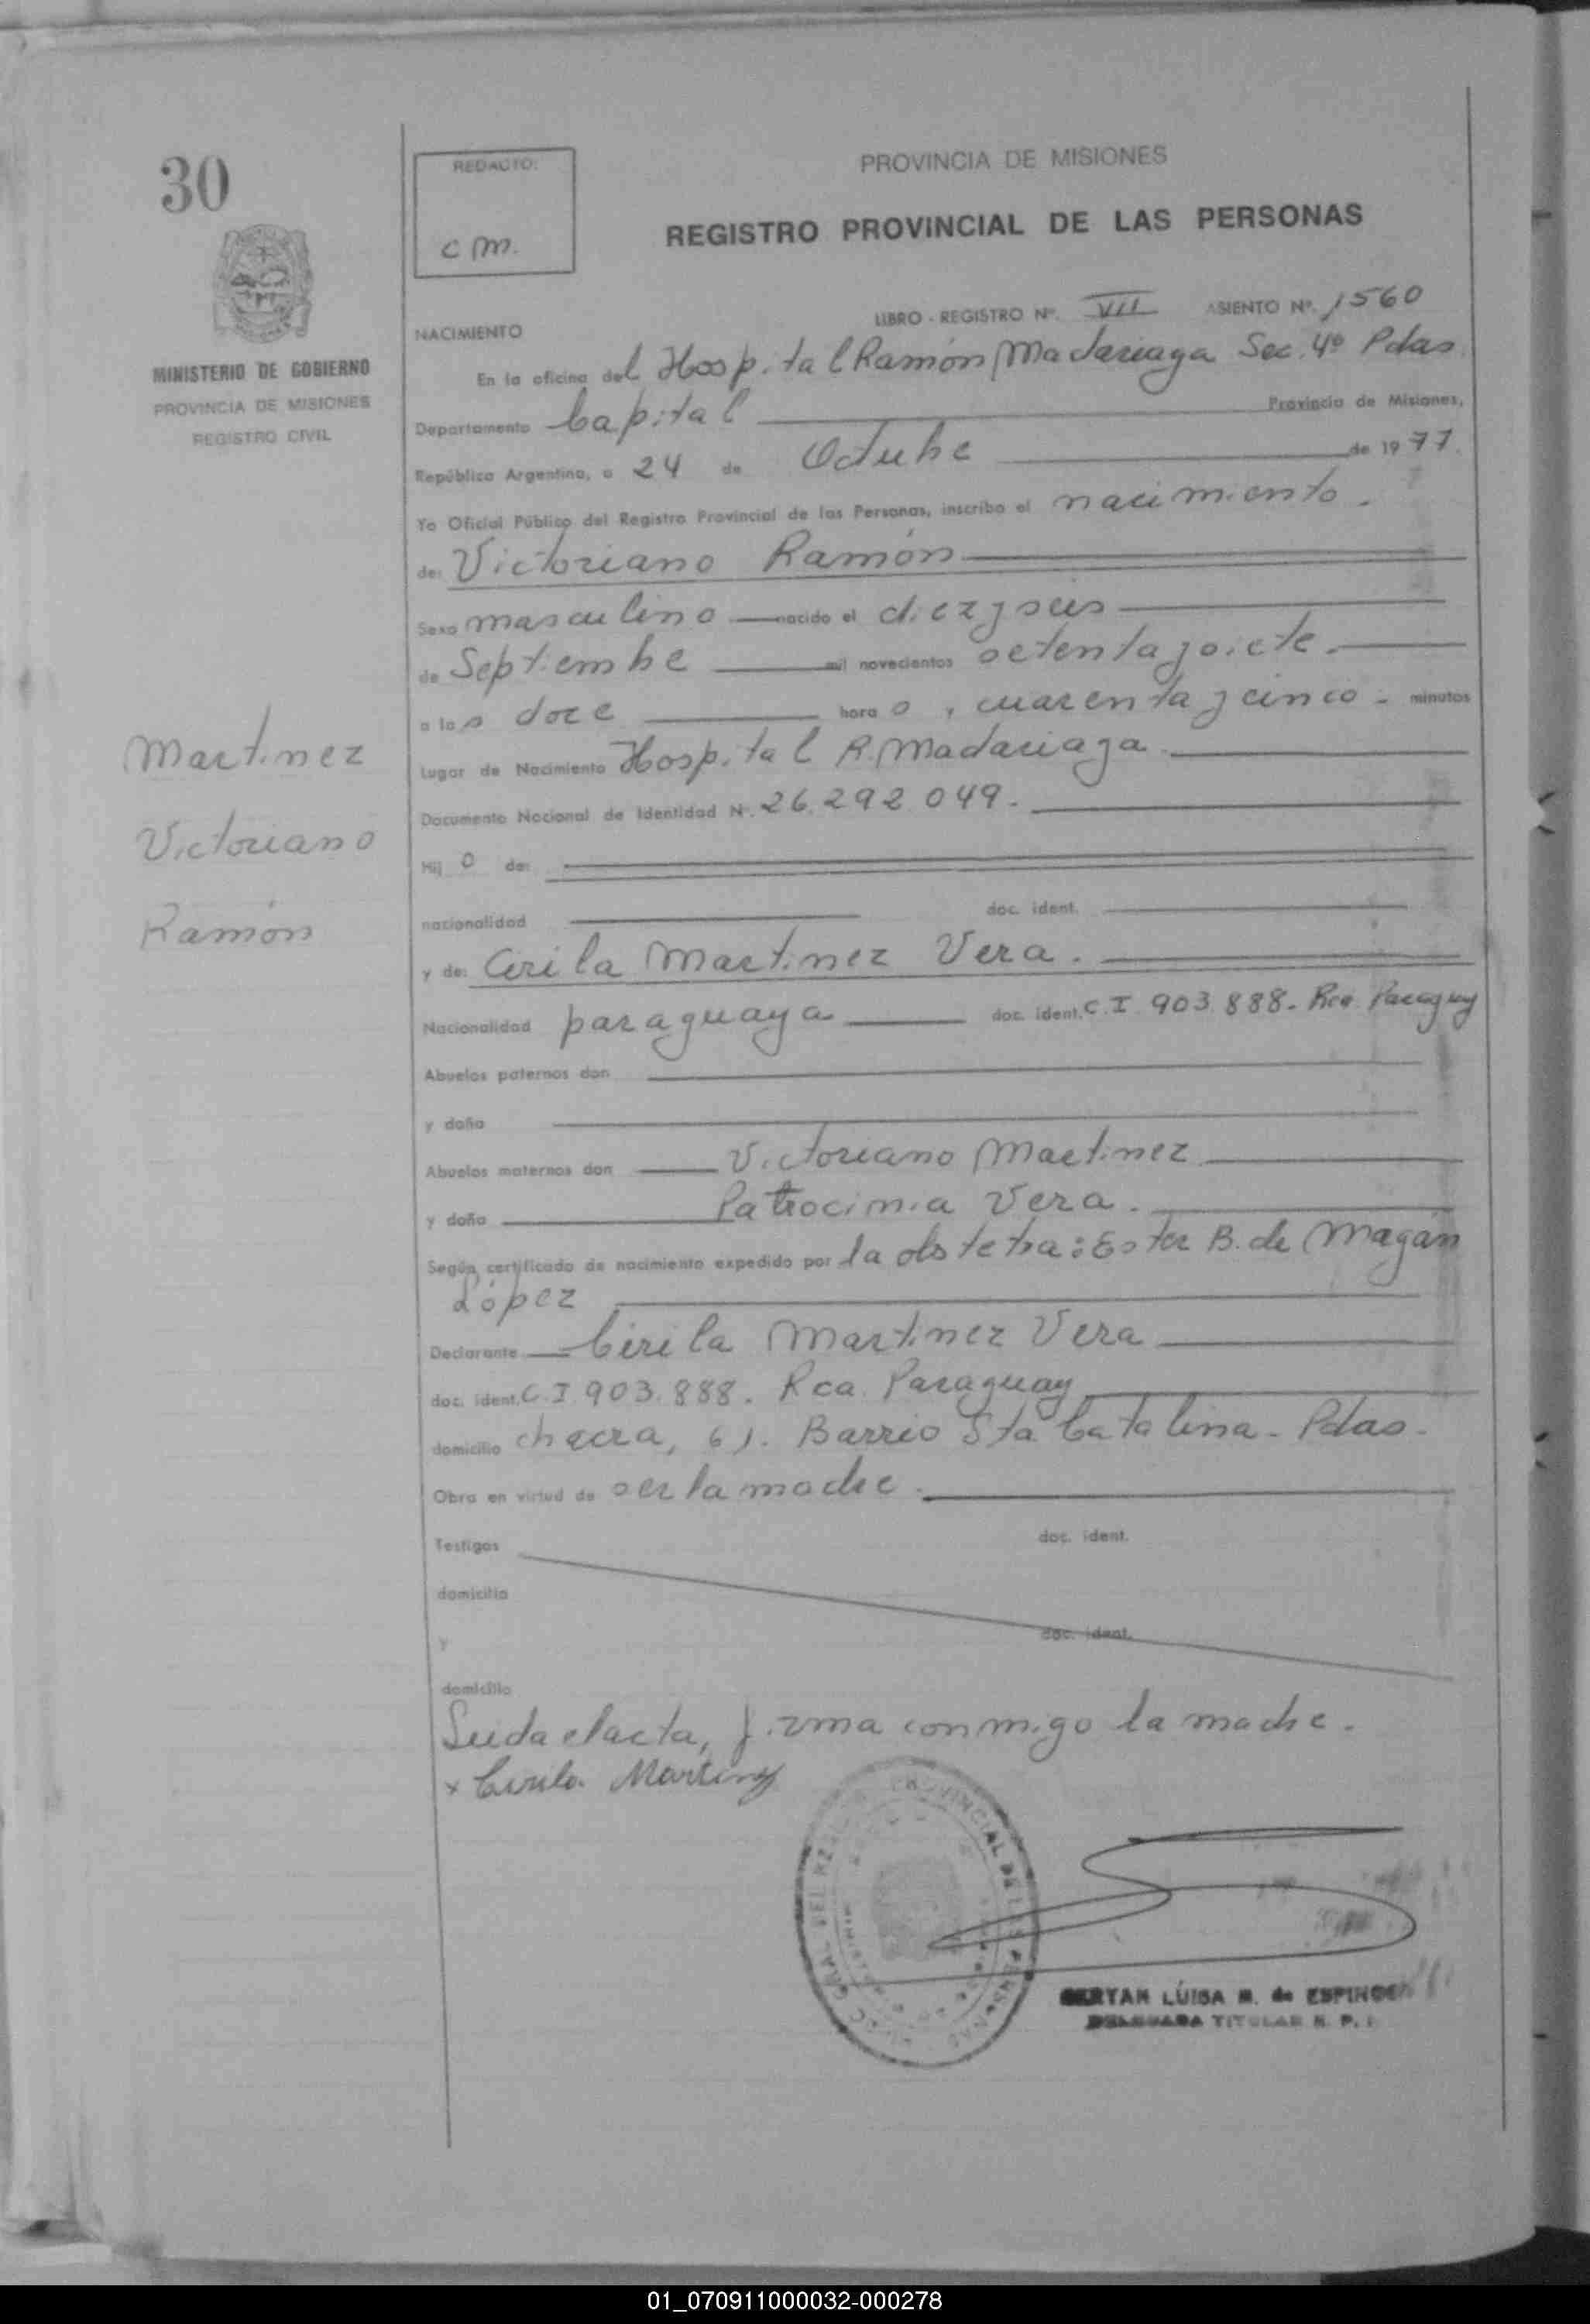 30
REDACTO:
c m.
PROVINCIA DE MISIONES
REGISTRO PROVINCIAL DE LAS PERSONAS
MINISTERIO DE GOBIERNO
PROVINCIA DE MISIONES
REGISTRO CIVIL
LIBRO - REGISTRO Nº. VII ASIENTO Nº. 1560
NACIMIENTO
En la oficina del Hospital Ramón Madariaga Sec. 4º Pdas
Departamento Capital Provincia de Misiones,
República Argentina, a 24 de Octubre de 1977.
Yo Oficial Público del Registro Provincial de las Personas, inscribo el nacimiento.
de: Victoriano Ramón
Sexo masculino nacido el diezyseis
de Septiembre mil novecientos setentaysiete.
a las doce horas, cuarentaycinco - minutos
Lugar de Nacimiento Hospital R. Madariaga.
Documento Nacional de Identidad N. 26.292.049.
Martinez
Victoriano
Ramón
Hij o de:
nacionalidad doc. ident.
y de: Cirila Martinez Vera.
Nacionalidad paraguaya doc. ident. C.I. 903.888. Rca. Paraguay
Abuelos paternos don
y doña
Abuelos maternos don Victoriano Martinez
y doña Patrocinia Vera.
Según certificado de nacimiento expedido por la obstetra: Ester B. de Magán
López
Declarante Cirila Martinez Vera
doc. ident. C.I 903.888. Rca. Paraguay
domicilio chacra, 61. Barrio Sta Catalina - Pdas.
Obra en virtud de ser la madre.
Testigos doc. ident.
domicilio
y doc. ident.
domicilio
Leida el acta, firma conmigo la madre.
x Cirila Martinez
LUISA M. de ESPINOSA
TITULAR R. P.
01_070911000032-000278